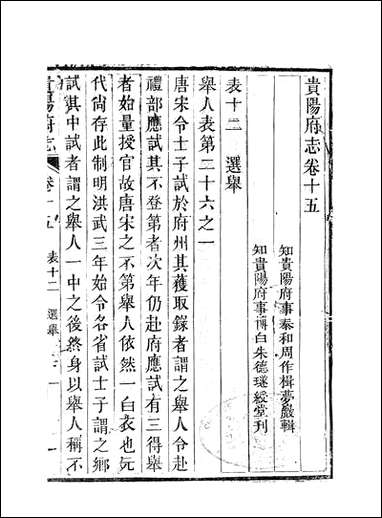 貴陽府志卷十五
知貴陽府事泰和周作楫夢巖輯
知貴陽府事博白朱德璲綬堂刊
表十二 選舉
舉人表第二十六之一
唐宋令士子試於府州其獲取錄者謂之舉人令赴
禮部應試其不登第者次年仍赴府應試有三得舉
者始量授官故唐宋之不第舉人依然一白衣也元
代尚存此制明洪武三年始令各省試士子謂之鄉
試其中試者謂之舉人一中之後終身以舉人稱不
貴陽府志 卷十五 表十二 選舉 一